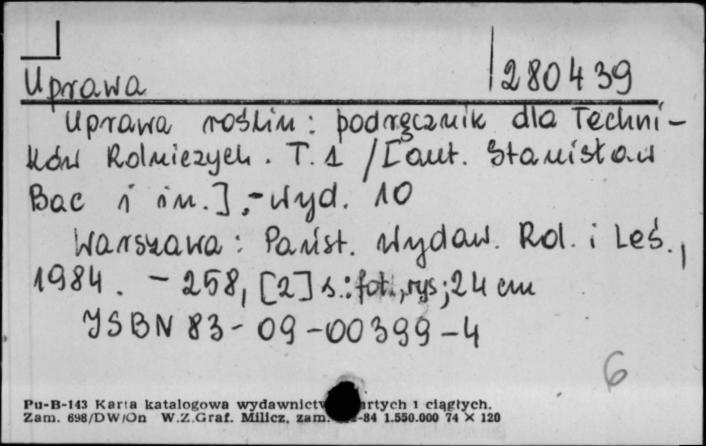 Uprawa 280439
Uprawa roślin: podręcznik dla Techni-
ków Rolniczych. T. 1 / [aut. Stanisław
Bac i in.].- Wyd. 10
Warszawa: Państ. Wydaw. Rol. i Leś.,
1984. - 258, [2] s.: fot., rys; 24 cm
ISBN 83-09-00399-4
6
Pu-B-143 Karta katalogowa wydawnictw ciągłych.
Zam. 698/DW/On W.Z.Graf. Milicz, zam. -84 1.550.000 74 X 120